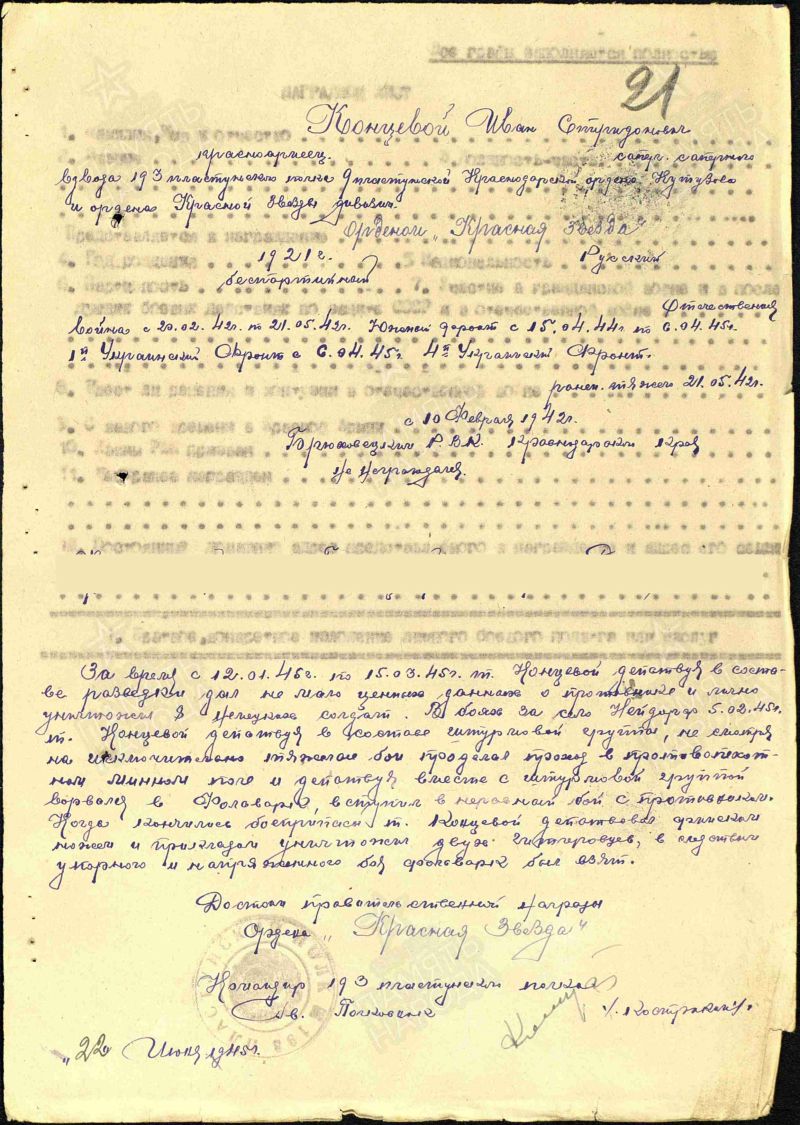 Все графы заполняются полностью
21
НАГРАДНОЙ ЛИСТ
1. Фамилия, имя и отчество Концевой Иван Спиридонович
2. Звание красноармеец. 3. Должность, часть сапер. саперного
взвода 193 пластунского полка 9 пластунской Краснодарской ордена Кутузова
и ордена Красной Звезды дивизии.
Представляется к награждению Орденом „Красная Звезда"
4. Год рождения 1921 г. 5 Национальность Русский
6. Партийность беспартийный 7. Участие в гражданской войне и в после
дующих боевых действиях по защите СССР и в отечественной войне Отечественная
война с 20.02.42г. по 21.05.42г. Южный фронт с 15.04.44г. по 6.04.45г.
1й Украинский Фронт с 6.04.45г. 4й Украинский Фронт.
8. Имеет ли ранения и контузии в отечественной войне ранен. тяжело 21.05.42г.
9. С какого времени в Красной Армии с 10 Февраля 1942г.
10. Каким РВК призван Брюховецким Р.В.К. Краснодарский край
11. Чем ранее награжден не награждался.
12. Постоянный домашний адрес представляемого к награждению и адрес его семьи
1. Краткое, конкретное изложение личного боевого подвига или заслуг
За время с 12.01.45г. по 15.03.45г. т. Концевой действуя в соста-
ве разведки дал не мало ценных данных о противнике и лично
уничтожил 8 немецких солдат. В боях за село Нейдорф 5.02.45г.
т. Концевой действуя в составе штурмовой группы, не смотря
на исключительно тяжелый бой проделал проход в противопехот-
ном минном поле и действуя вместе с штурмовой группой
ворвался в Фольварк, вступил в неравный бой с противником.
Когда кончились боеприпасы т. Концевой действовал финским
ножом и прикладом уничтожил двух гитлеровцев, в следствии
упорного и напряженного боя фольварк был взят.
Достоин правительственной награды
Ордена „Красная Звезда"
Командир 193 пластунского полка
Гв. Полковник /. Костриков /.
„22" Июня 1945г.